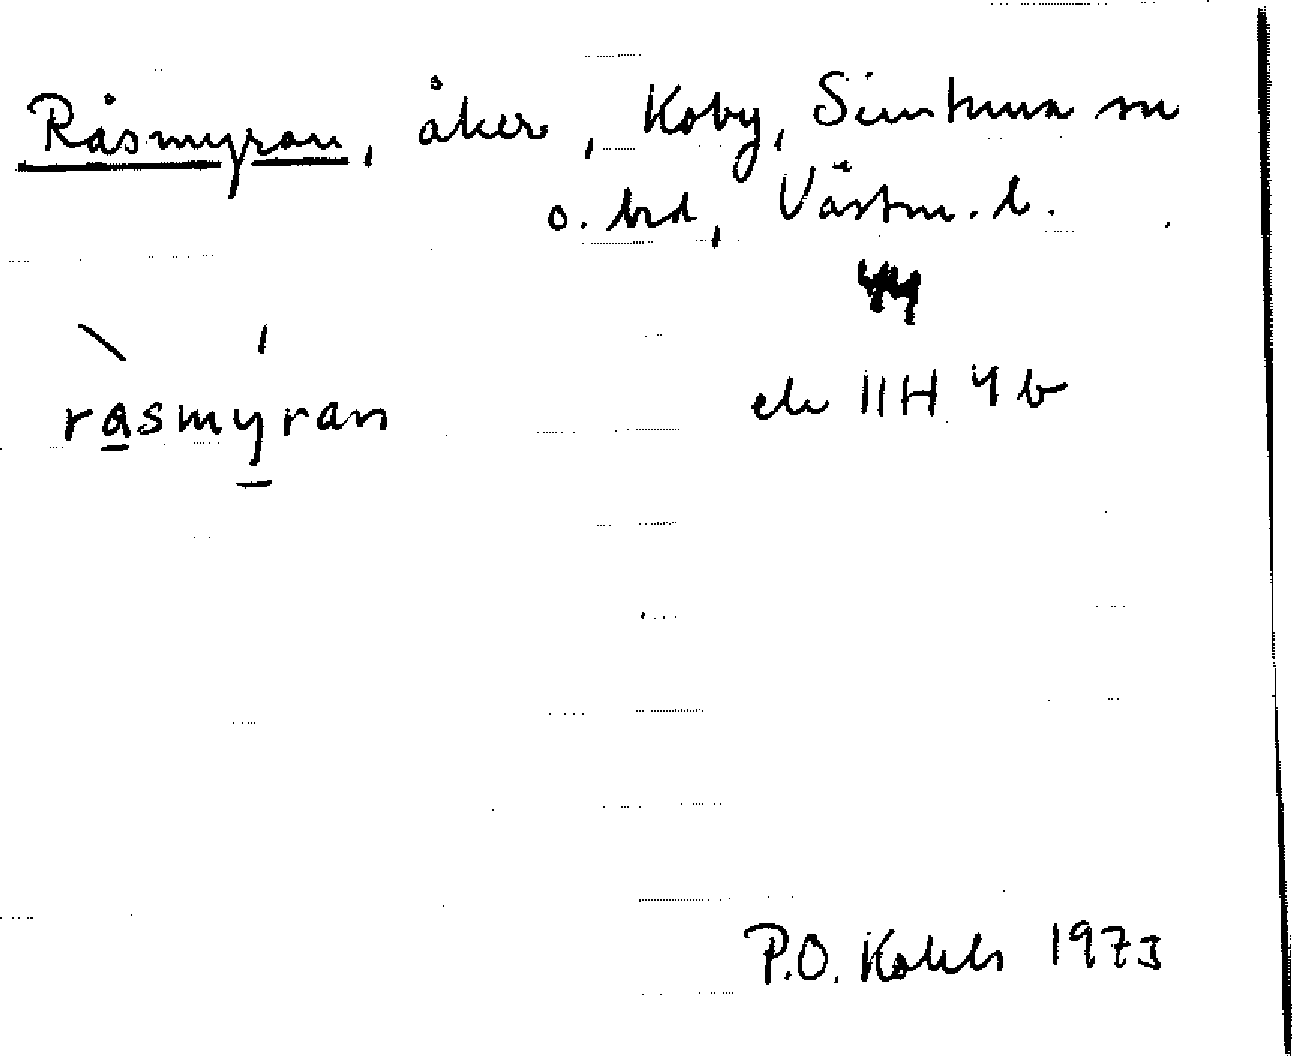 Råsmyran, åker, Koby, Simtuna sn
o. hd, Västm. l.
44
råsmyran
ek 11H 4b
P.O. 1973